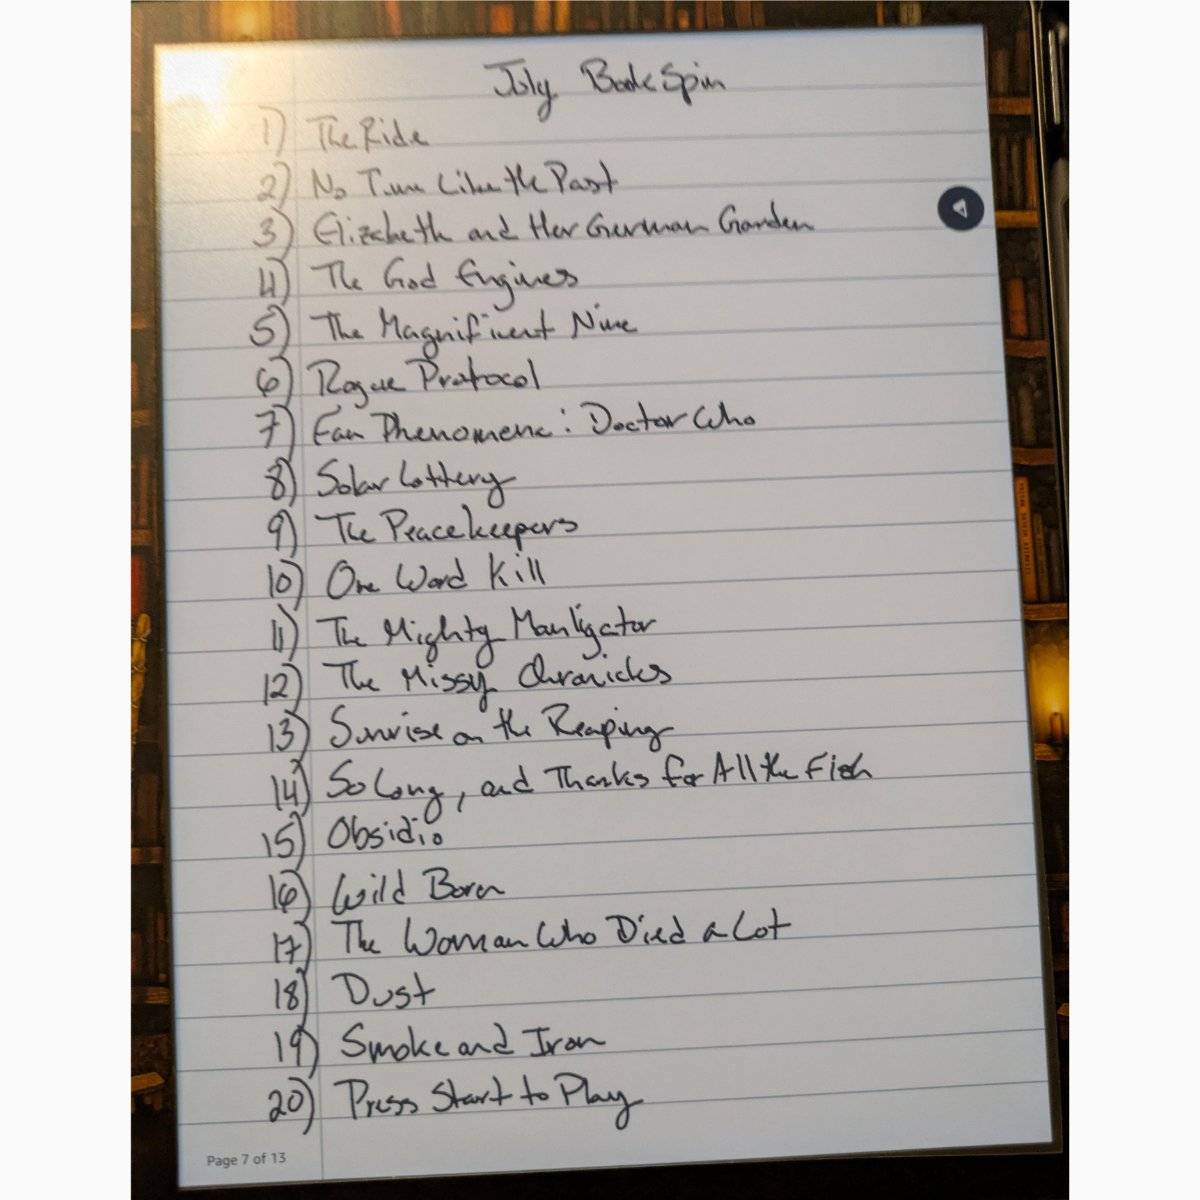 July BookSpin
1) The Ride
2) No Time Like the Past
3) Elizabeth and Her German Garden
4) The God Engines
5) The Magnificent Nine
6) Rogue Protocol
7) Fan Phenomena: Doctor Who
8) Solar Lottery
9) The Peacekeepers
10) One Word Kill
11) The Mighty Manligator
12) The Missy Chronicles
13) Sunrise on the Reaping
14) So Long, and Thanks for All the Fish
15) Obsidio
16) Wild Born
17) The Woman Who Died a Lot
18) Dust
19) Smoke and Iron
20) Press Start to Play
Page 7 of 13